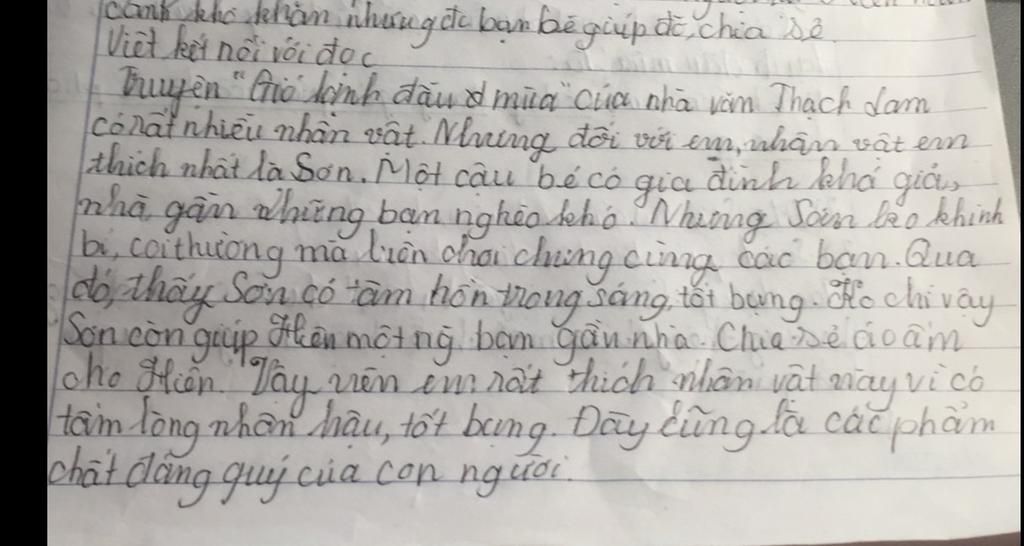 cảnh khó khăn nhưng đc bạn bè giúp đỡ, chia sẻ
Viết kết nối với đọc
Truyện "Gió lạnh đầu mùa" của nhà văn Thạch Lam
có rất nhiều nhân vật. Nhưng đối với em, nhân vật em
thích nhất là Sơn. Một cậu bé có gia đình khá giả,
nhà gần những bạn nghèo khó. Nhưng Sơn ko khinh
bỉ, coi thường mà luôn chơi chung cùng các bạn. Qua
đó, thấy Sơn có tâm hồn trong sáng, tốt bụng. Ko chỉ vậy
Sơn còn giúp Hiên một ng bạn gần nhà. Chia sẻ áo ấm
cho Hiên. Vậy nên em rất thích nhân vật này vì có
tấm lòng nhân hậu, tốt bụng. Đây cũng là các phẩm
chất đáng quý của con người.